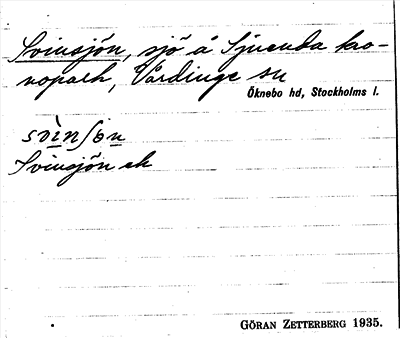 Svinsjön, sjö å Sjuenda kro-
nopark, Vårdinge sn
Öknebo hd, Stockholms l.
svìnʃөn
Svinsjön ek
GÖRAN ZETTERBERG 1935.